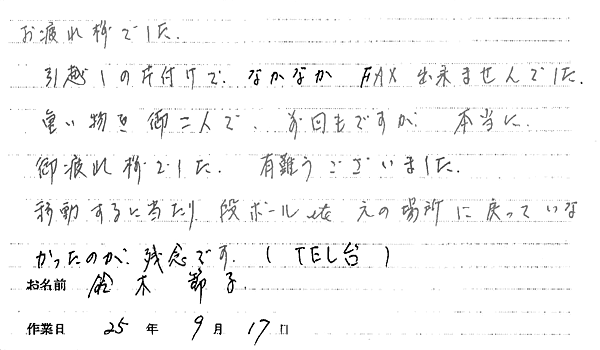 お疲れ様でした.
引越しの片付けで、なかなか FAX 出来ませんでした.
重い物を御二人で、前回もですが、本当に、
御疲れ様でした。有難うございました.
移動するに当たり、段ボール etc 元の場所に戻っていな
かったのが、残念です.(TEL台)
お名前 鈴木 節子.
作業日 25 年 9 月 17 日